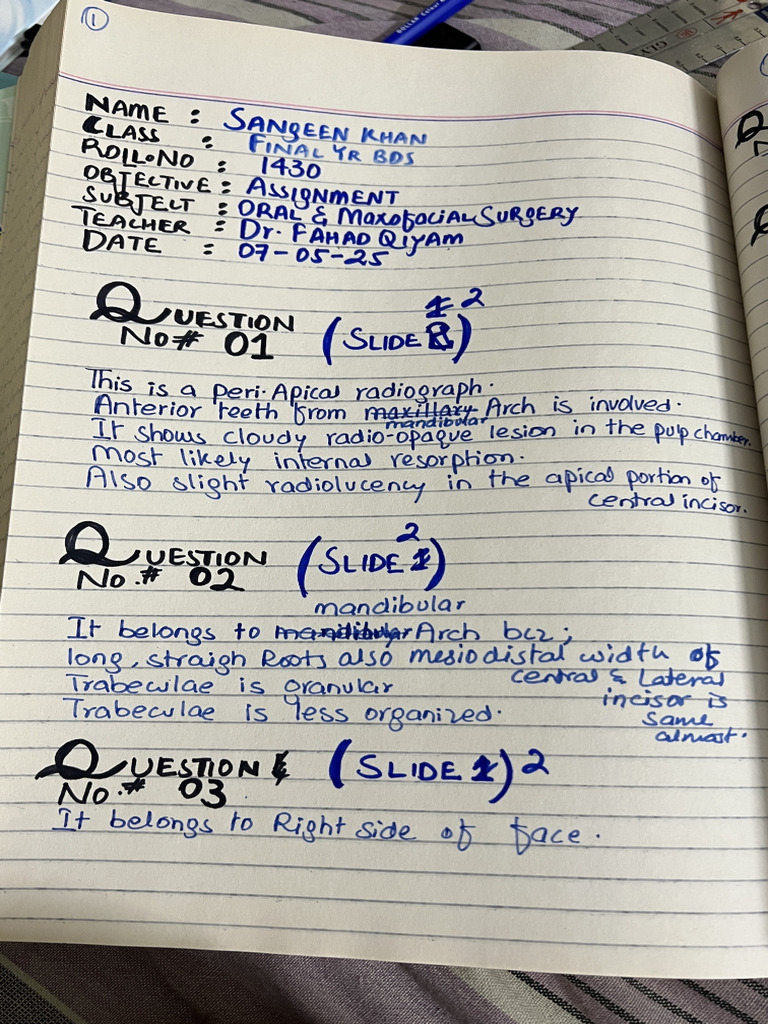 1
NAME : SANGEEN KHAN
CLASS : FINAL YR BDS
ROLL.NO : 1430
OBJECTIVE : ASSIGNMENT
SUBJECT : ORAL & MAXOFACIAL SURGERY
TEACHER : Dr. FAHAD QIYAM
DATE : 07-05-25
QUESTION No# 01 (SLIDE 2)
This is a peri.Apical radiograph.
Anterior teeth from maxillary mandibular Arch is involved.
It shows cloudy radio-opaque lesion in the pulp chamber.
Most likely internal resorption.
Also slight radiolucency in the apical portion of
central incisor.
QUESTION No.# 02 (SLIDE 2)
mandibular
It belongs to mandibular Arch bcz;
long, straigh Roots also mesiodistal width of
central & Lateral
incisor is
same
almost.
Trabeculae is granular
Trabeculae is less organized.
QUESTION No.# 03 (SLIDE 2)
It belongs to Right side of face.